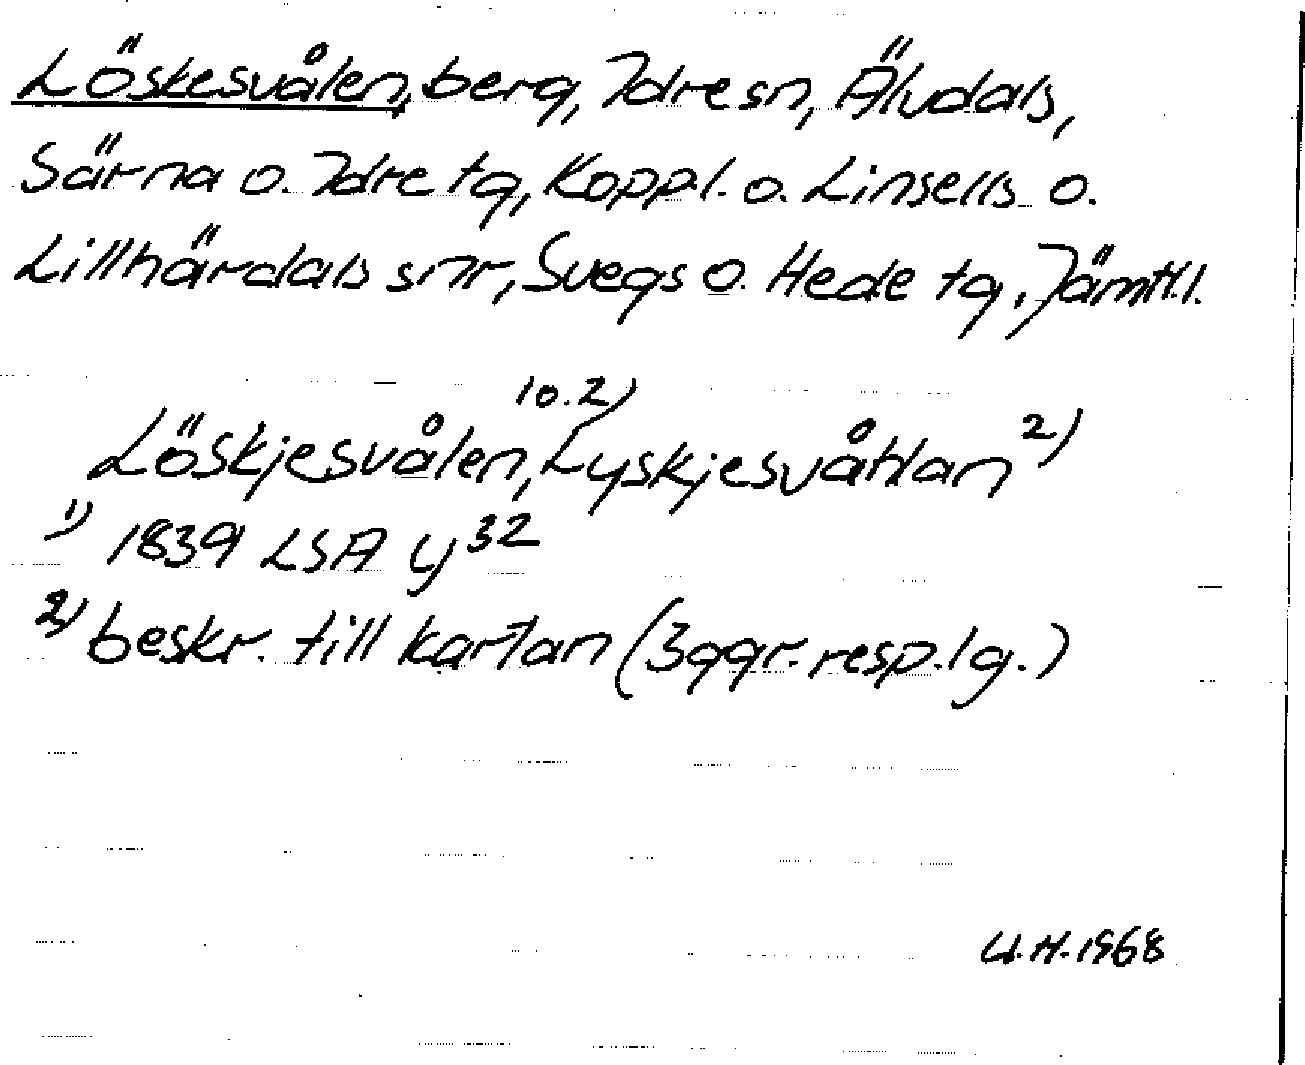 Löskesvålen, berg, Idre sn, Älvdals,
Särna o. Idre tg, Koppl. o. Linsells o.
Lillhärdals snr, Svegs o. Hede tg, Jämtl.l.
Löskjesvålen, 1 o. 2) Lyskjesvåhlan 2)
1) 1839 LSA Y32
2) beskr. till kartan (3ggr. resp. 1g.)
U.H. 1968